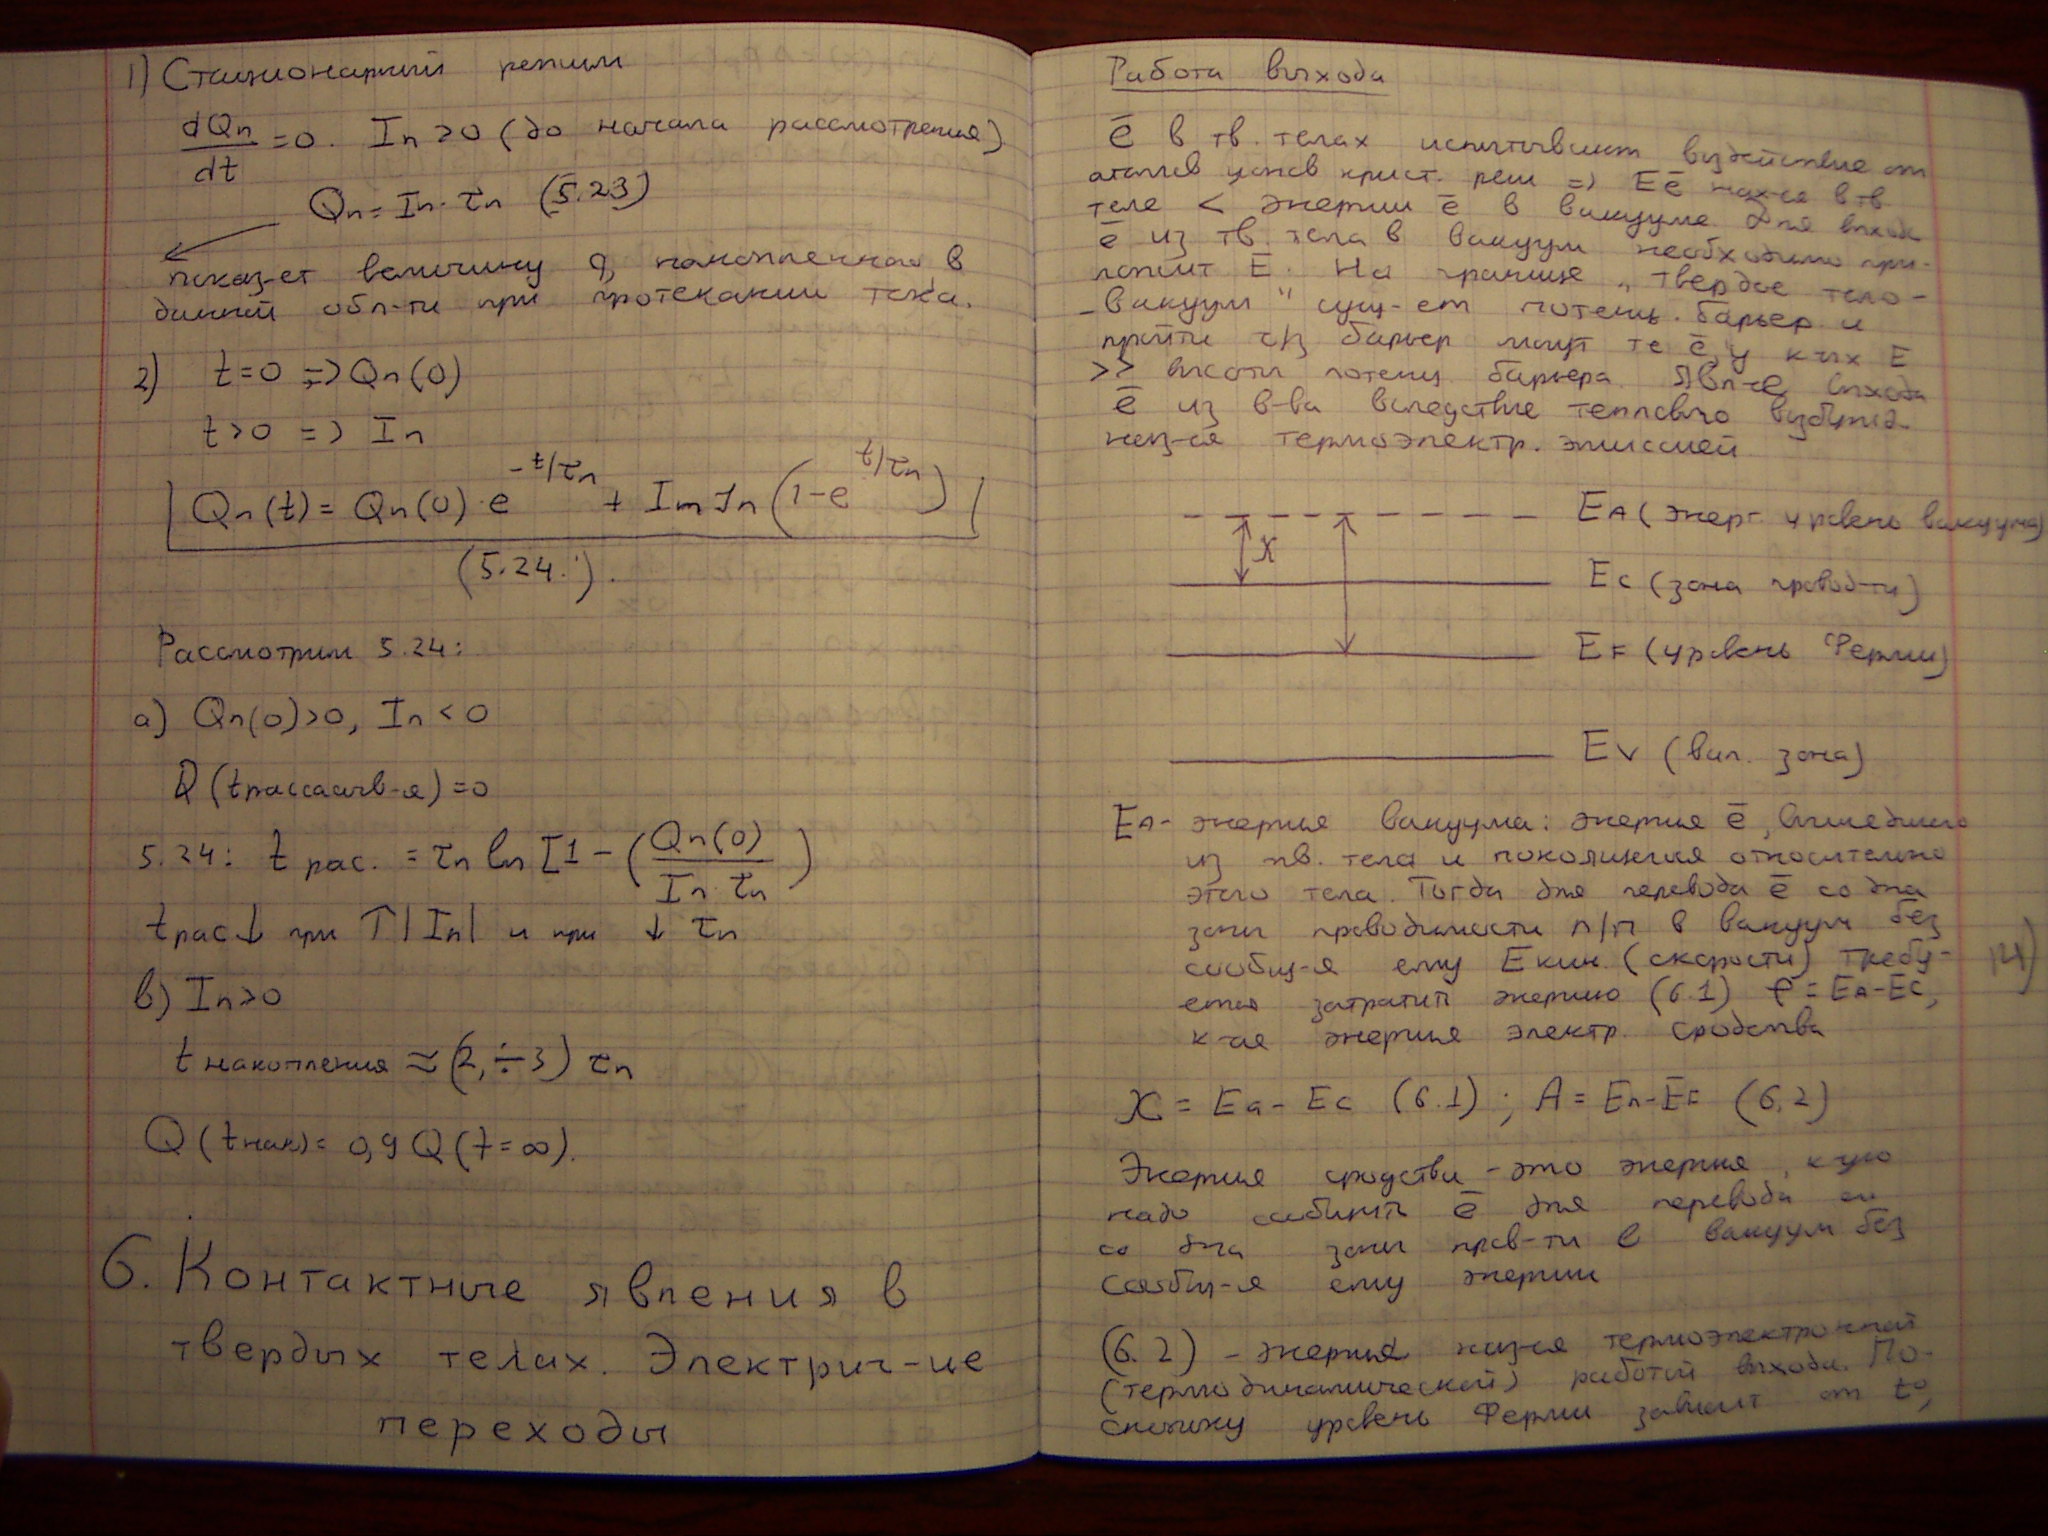 1) Стационарный режим
dQn/dt = 0. In > 0 (до начала рассмотрения)
Qn = In · τn (5.23)
показ-ет величину q, накопленного в
данной обл-ти при протекании тока.
2) t = 0 => Qn(0)
t > 0 => In
Qn(t) = Qn(0) · e^(-t/τn) + Im Jn (1 - e^(t/τn))
(5.24.).
Рассмотрим 5.24:
а) Qn(0) > 0, In < 0
Q (tрассасыв-я) = 0
5.24: t рас. = τn ln [1 - (Qn(0)/(In · τn))
tрас↓ при ↑|In| и при ↓ τn
в) In > 0
t накопления ≈ (2,÷3) τn
Q (tнак) = 0,9 Q (t = ∞).
6. Контактные явления в
твердых телах. Электрич-ие
переходы
Работа выхода
ē в тв. телах испытывают воздействие от
атомов узлов крист. реш => Eē нах-ся в тв
теле < энергии ē в вакууме Для выхода
ē из тв. тела в вакуум необходимо при-
ложит E. На границе „твердое тело-
-вакуум" сущ-ет потенц. барьер и
пройти ч/з барьер могут те ē, у к-ых E
>> высоты потенц. барьера. Явл-е выхода
ē из в-ва вследствие теплового возбужд.
наз-ся термоэлектр. эмиссией
EA (энерг. уровень вакуума)
χ
EC (зона провод-ти)
EF (уровень Ферми)
EV (вал. зона)
EA - энергия вакуума: энергия ē, вышедшего
из тв. тела и покоящегося относительно
этого тела. Тогда для перевода ē со дна
зоны проводимости п/п в вакуум без
сообщ-я ему Eкин. (скорости) требу-
ется затратить энергию (6.1) φ = EA-EC,
к-ая энергия электр. сродства
14)
χ = Ea - Ec (6.1) ; A = EA - EF (6.2)
Энергия сродства - это энергия, к-ую
надо сообщить ē для перевода его
со дна зоны пров-ти в вакуум без
сообщ-я ему энергии
(6.2) - энергия наз-ся термоэлектронной
(термодинамической) работой выхода. По-
скольку уровень Ферми зависит от t°,